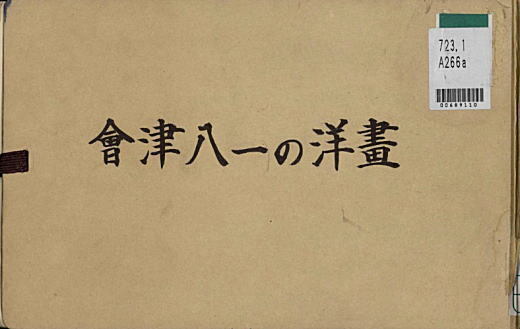 723.1
A266a
00689110
會津八一の洋畫